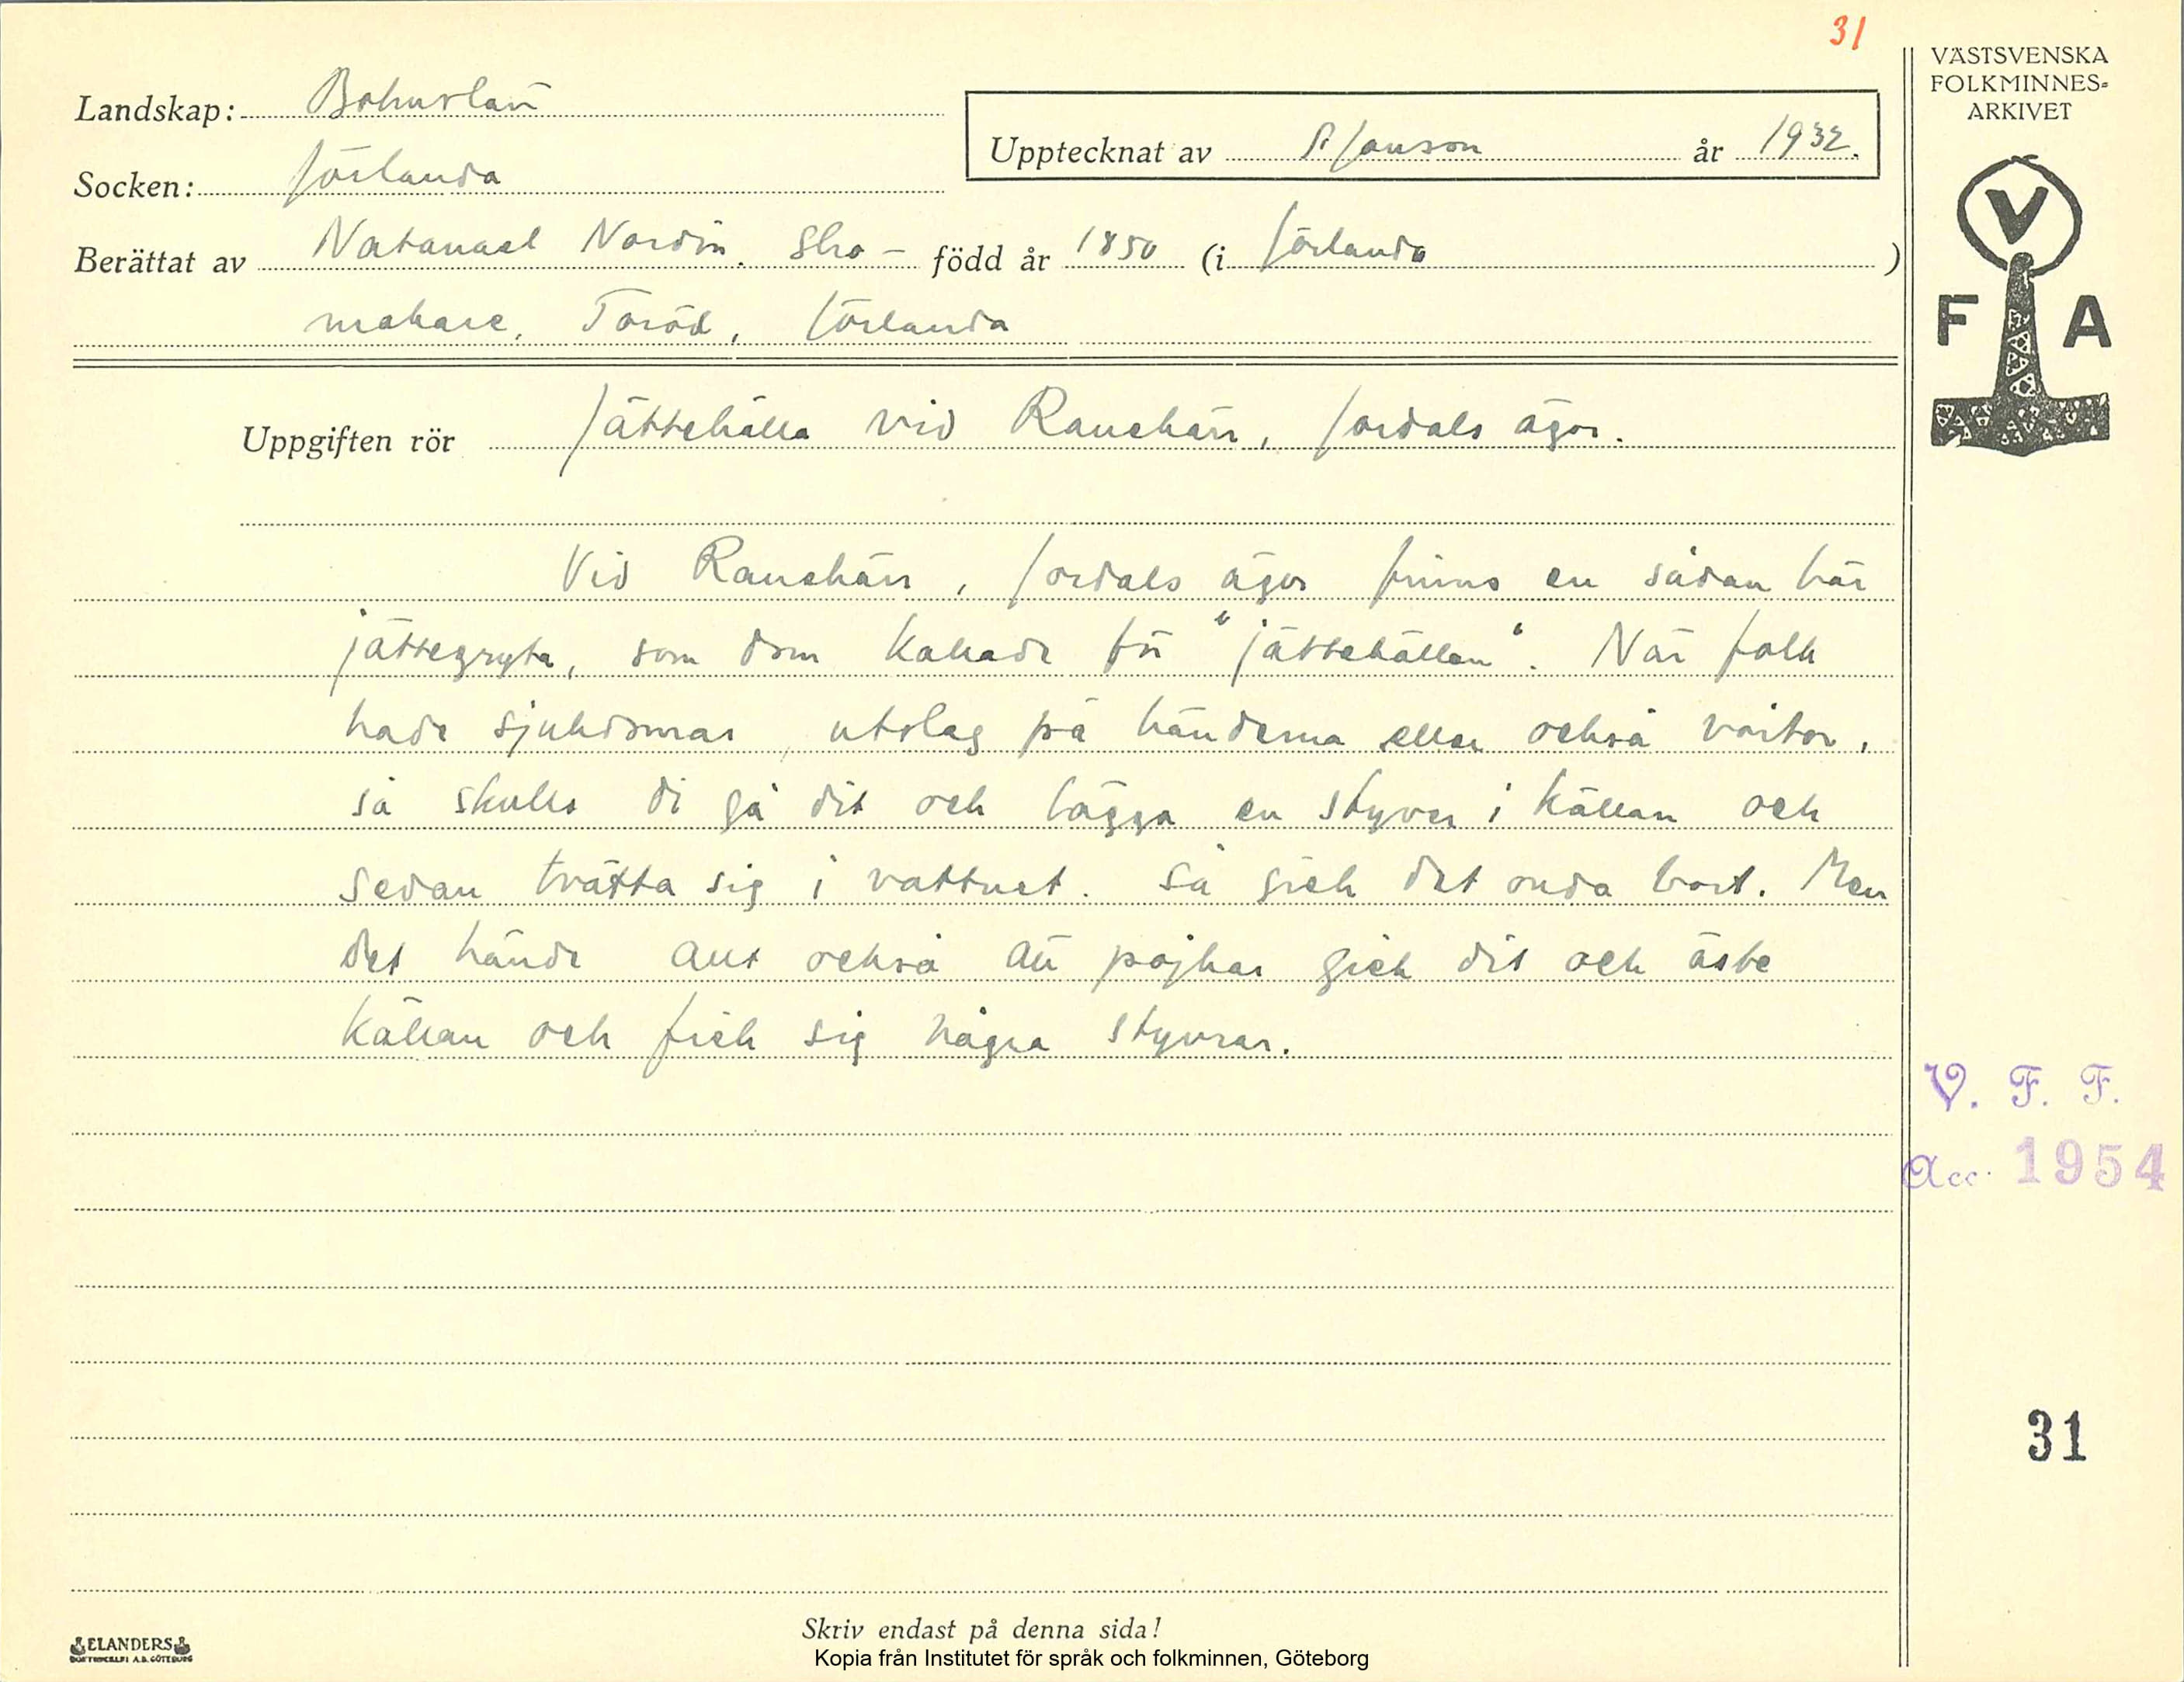 31
VÄSTSVENSKA
FOLKMINNES-
ARKIVET
Landskap: Bohuslän
Upptecknat av A Janson år 1932.
Socken: Jörlanda
Berättat av Natanael Nordin. Sko- född år 1850 (i Jörlanda)
makare, Toröd, Jörlanda
V
F A
Uppgiften rör Jättekälla vid Ranekärr, Jordals ägor.
Vid Ranekärr, Jordals ägor finns en sådan här
jättegryta, som dom kallade för "jättekällan". När folk
hade sjukdomar, utslag på händerna eller också vårtor,
så skulle di gå dit och lägga en styver i källan och
sedan tvätta sig i vattnet. Så gick det onda bort. Men
det hände allt också att pojkar gick dit och äste
källan och fick sig några styvrar.
V. F. F.
Acc. 1954
31
Skriv endast på denna sida!
ELANDERS
BOKTRYCKERI A.B. GÖTEBORG
Kopia från Institutet för språk och folkminnen, Göteborg